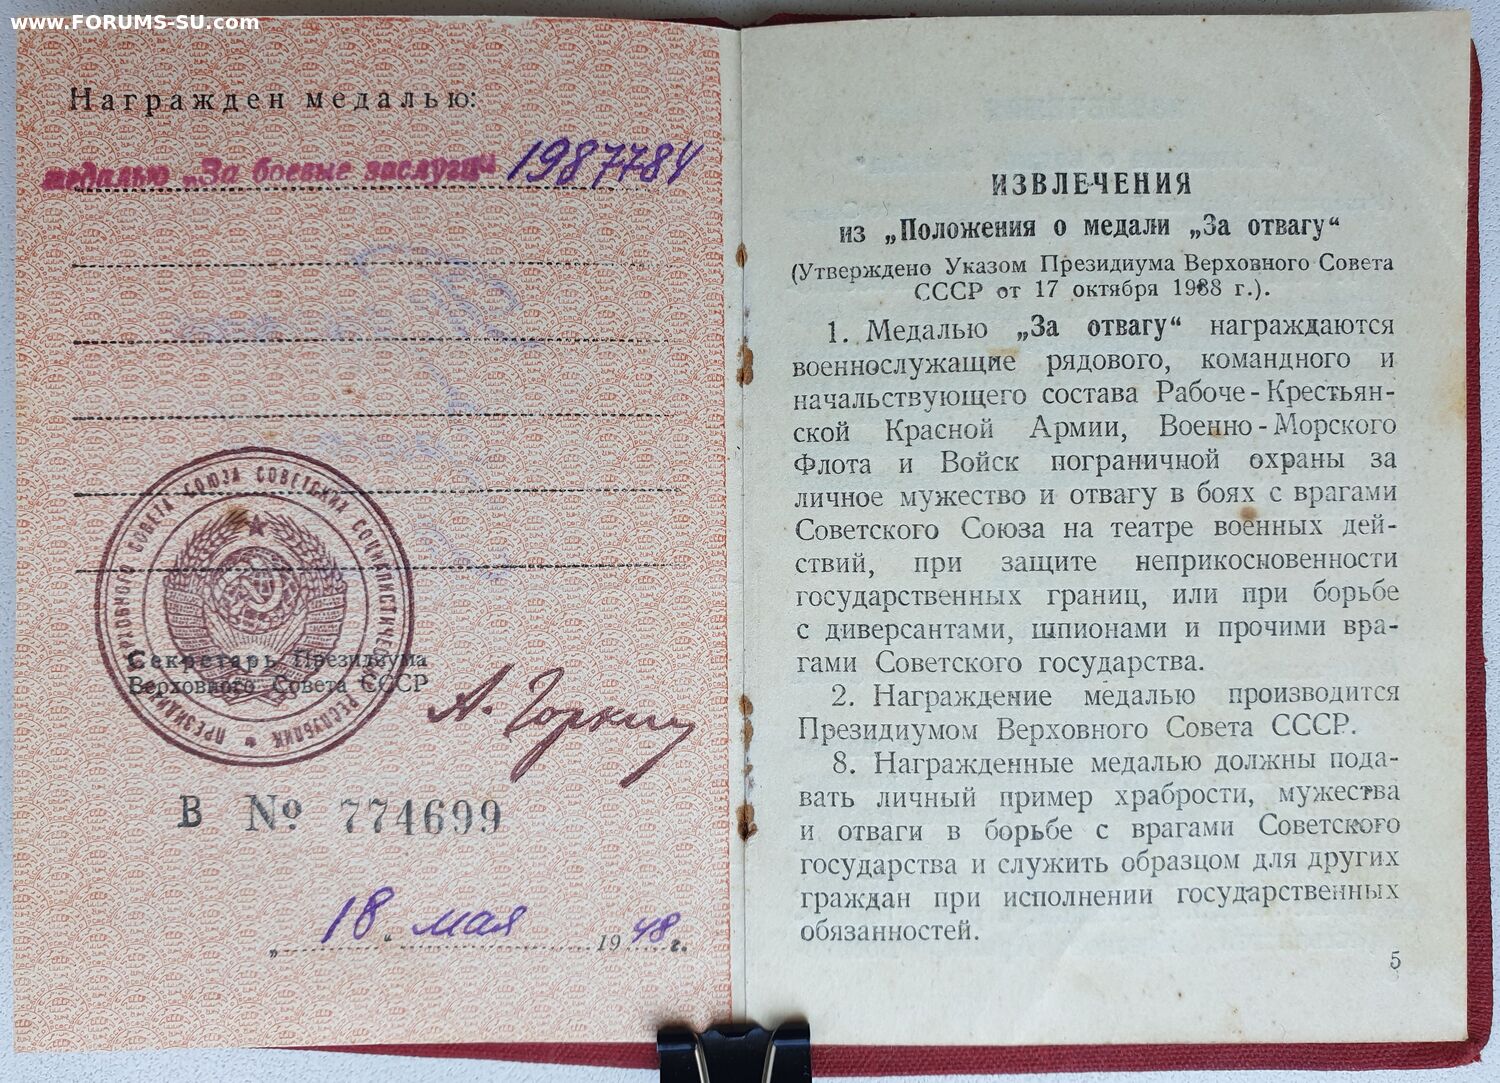 www.FORUMS-SU.com
Награжден медалью:
медалью „За боевые заслуги“ 1987784
ПРЕЗИДИУМ ВЕРХОВНОГО СОВЕТА СОЮЗА СОВЕТСКИХ СОЦИАЛИСТИЧЕСКИХ РЕСПУБЛИК
Секретарь Президиума
Верховного Совета СССР
А. Горкин
В № 774699
„18“ мая 1948 г.
ИЗВЛЕЧЕНИЯ
из „Положения о медали „За отвагу“
(Утверждено Указом Президиума Верховного Совета
СССР от 17 октября 1938 г.).
1. Медалью „За отвагу“ награждаются
военнослужащие рядового, командного и
начальствующего состава Рабоче-Крестьян-
ской Красной Армии, Военно-Морского
Флота и Войск пограничной охраны за
личное мужество и отвагу в боях с врагами
Советского Союза на театре военных дей-
ствий, при защите неприкосновенности
государственных границ, или при борьбе
с диверсантами, шпионами и прочими вра-
гами Советского государства.
2. Награждение медалью производится
Президиумом Верховного Совета СССР.
3. Награжденные медалью должны пода-
вать личный пример храбрости, мужества
и отваги в борьбе с врагами Советского
государства и служить образцом для других
граждан при исполнении государственных
обязанностей.
5